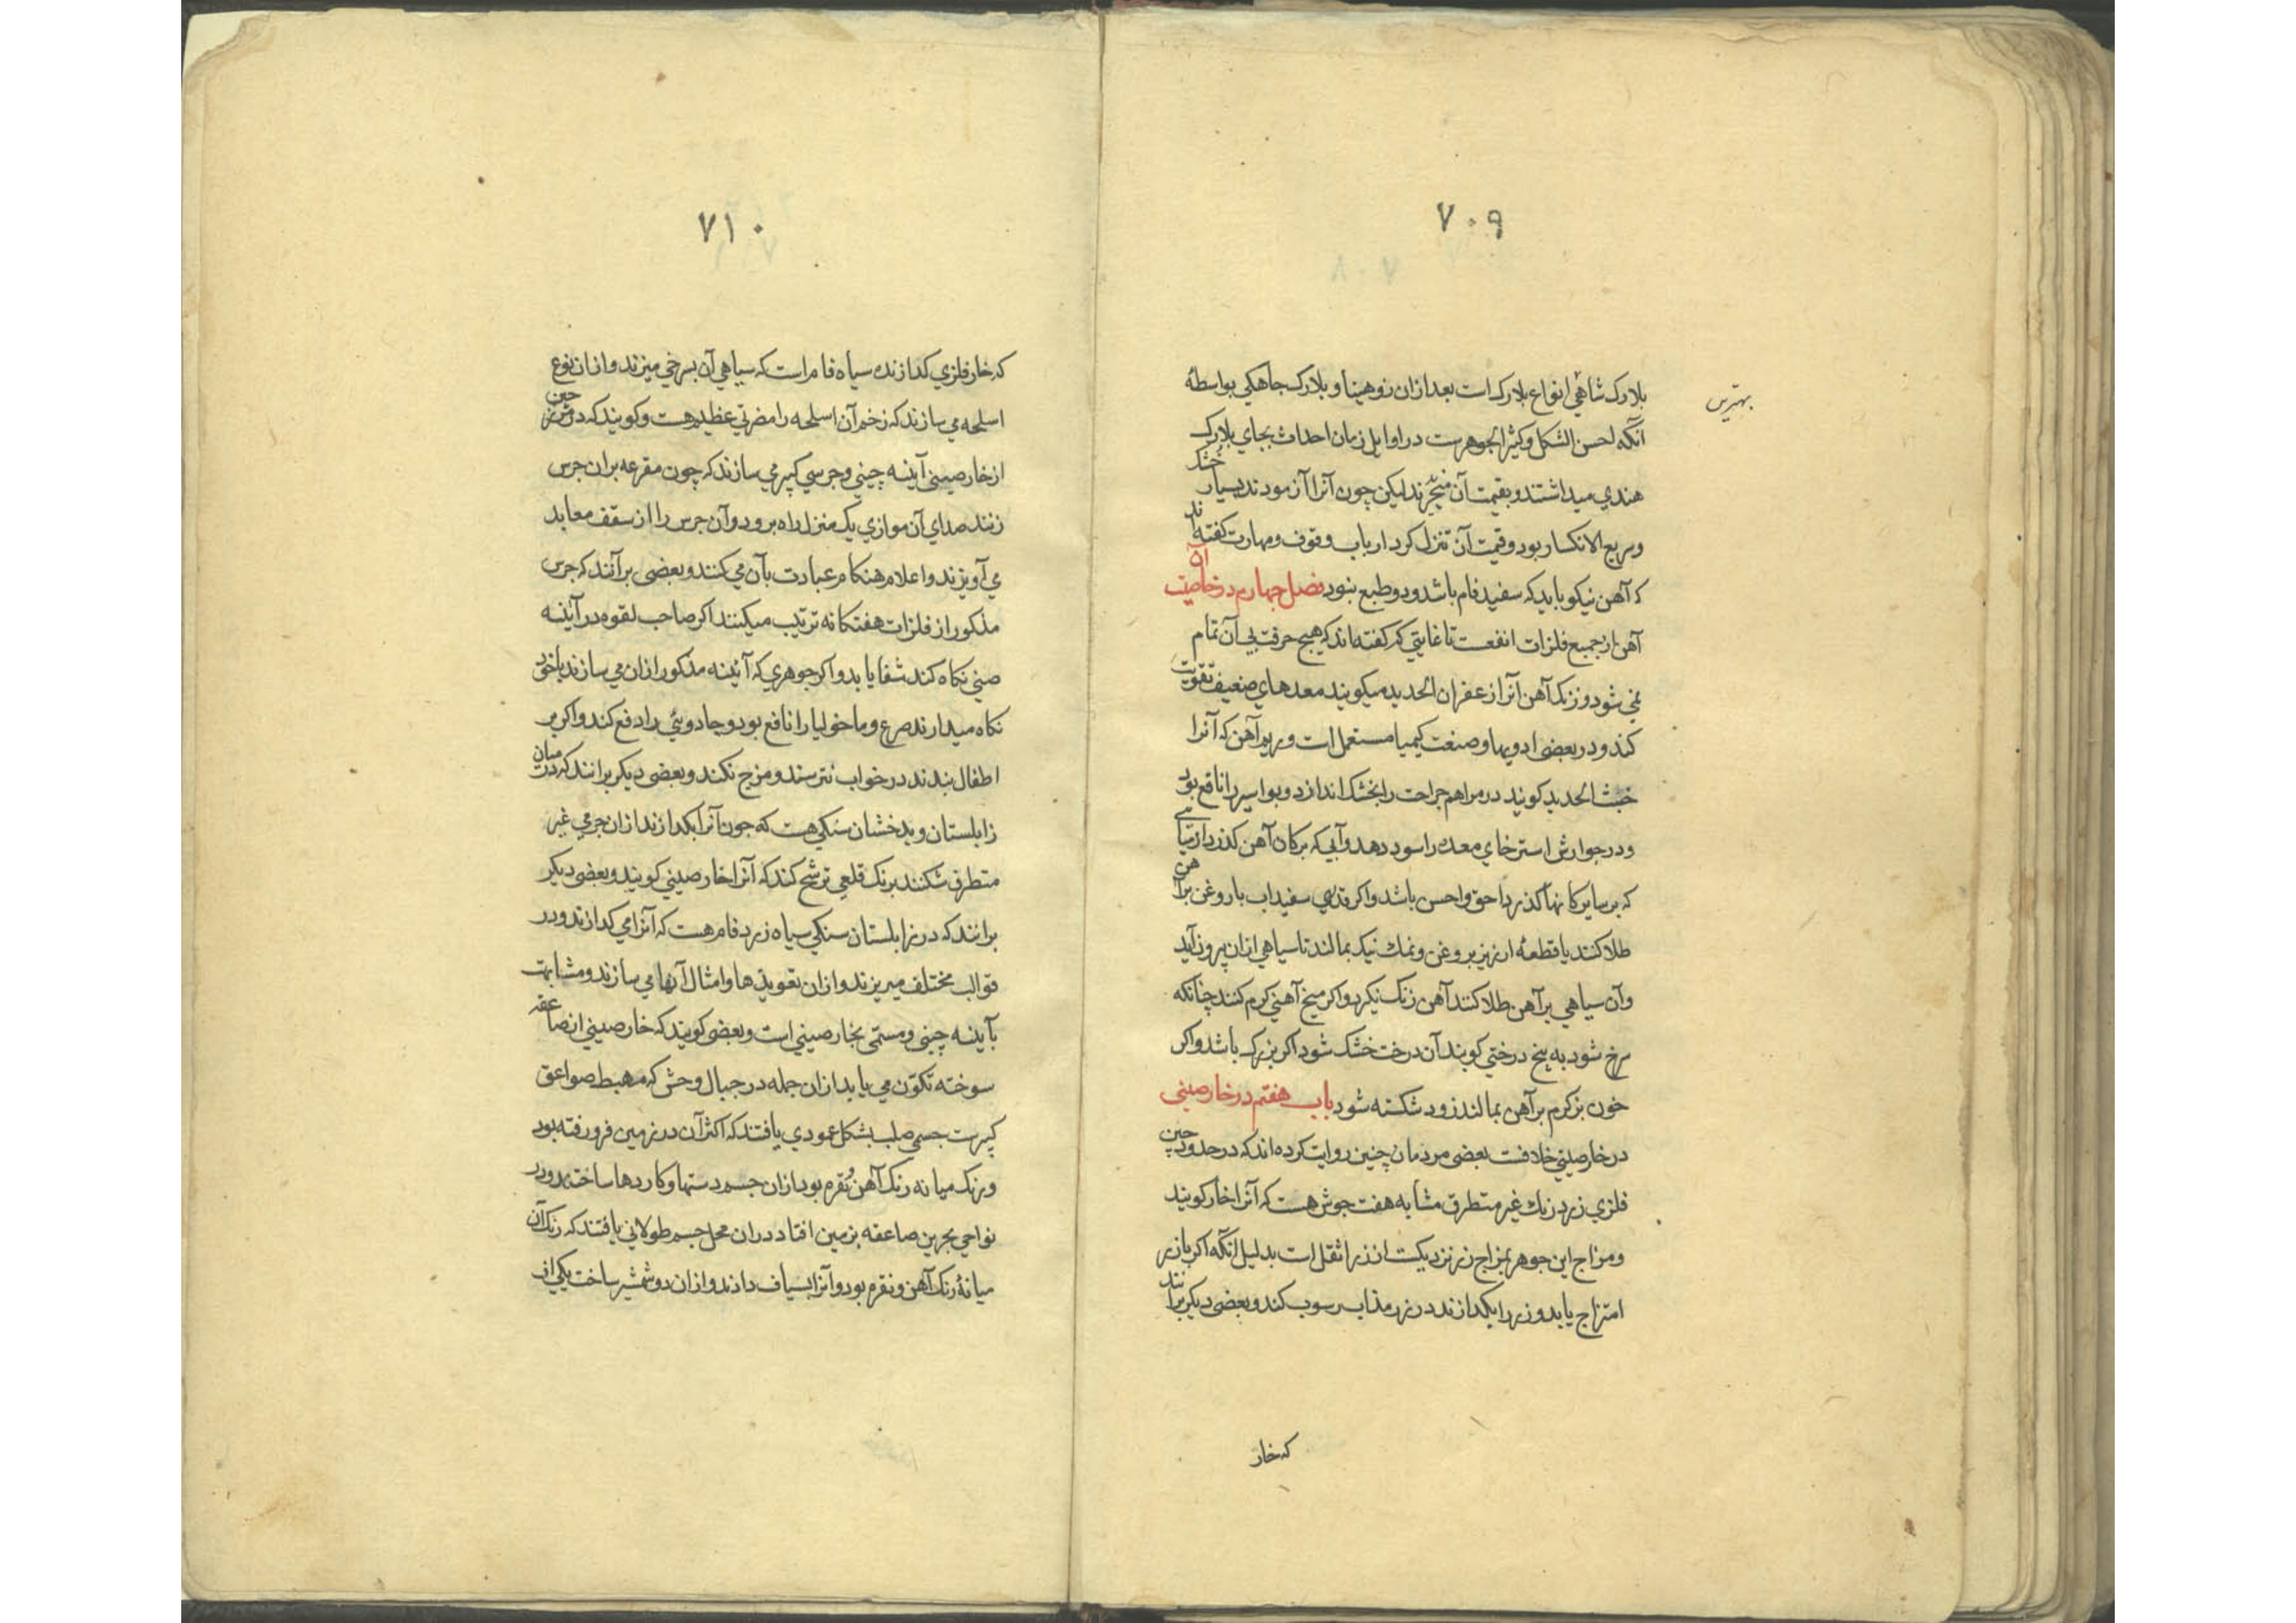 ۷۰۹
بهترین
بلارک شاهی انواع بلارک است بعد ازان روهینا و بلارک جاهکی بواسطهٔ
آنکه احسن الشکل و کثیر الجوهرست در اوایل زمان احداث بجای بلارک
هندی میداشتند و بقیمت آن میخریدند لیکن چون آنرا آزمودند بسیار خشک
و سریع الانکسار بود و قیمت آن تنزل کرد ارباب وقوف و مهارت گفته‌اند
که آهن نیکو باید که سفید فام باشد و دو طبع نبود فصل چهارم در خاصیت آن
آهن از جمیع فلزات انفعست تا غایتی که گفته‌اند که هیچ حرفت بی آن تمام
نمی شود و زنک آهن آنرا زعفران الحدید میکویند معدهای ضعیف تقویت
کند و در بعضی ادویها و صنعت کیمیا مستعمل است و ریم آهن که آنرا
خبث الحدید کویند در مراهم جراحت را بخشک اندازد و بواسیر را نافع بود
و در جوارش استرخای معده را سود دهد و آبی که بر کان آهن کذرد از میاهی
که بر سایر کانها کذرد احق و احسن باشد و اکر قدری سفیداب با روغن بر آهن
طلا کنند یا قطعهٔ ارزیز بروغن و نمک نیک بمالند تا سیاهی ازان بیرون آید
و آن سیاهی بر آهن طلا کنند آهن زنک نکیرد و اکر میخ آهنی کرم کنند چنانکه
سرخ شود به بیخ درختی کوبند آن درخت خشک شود اکر بزرک باشد و اکر
خون بز کرم بر آهن بمالند زود شکسته شود باب هفتم در خارصینی
در خارصینی خلافست بعضی مردمان چنین روایت کرده‌اند که در حدود چین
فلزی زرد رنک غیر متطرق مشابه هفت جوش هست که آنرا خار کویند
و مزاج این جوهر بمزاج زر نزدیکست از زر اثقل است بدلیل آنکه اکر با زر
امتزاج یابد و زر را بکدازند در زر مذاب رسوب کند و بعضی دیکر برانند
که خار
۷۱۰
که خار فلزی کدازنده سیاه فام است که سیاهی آن بسرخی میزند و ازان نوع
اسلحه می سازند که زخم آن اسلحه را مضرتی عظیم هست و کویند که در چین
از خارصینی آینه چینی و جرسی کبیر می سازند که چون مقرعه بران جرس
زنند صدای آن موازی یک منزل راه برود و آن جرس را از سقف معابد
می آویزند و اعلام هنکام عبادت بآن می کنند و بعضی برآنند که جرس
مذکور از فلزات هفتکانه ترتیب میکنند اکر صاحب لقوه در آینه
صینی نکاه کند شفا یابد و اکر جوهری که آئینه مذکور ازان می سازند با خود
نکاه میدارند صرع و ماخولیا را نافع بود و جادوئی را دفع کند و اکر بر
اطفال بندند در خواب نترسند و مزج نکند و بعضی دیکر برانند که در میان
زابلستان و بدخشان سنکی هست که چون آنرا بکدازند ازان جرمی غیر
متطرق شکننده برنک قلعی ترشح کند که آنرا خارصینی کویند و بعضی دیکر
برانند که در زابلستان سنکی سیاه زرد فام هست که آنرا می کدازند و در
قوالب مختلف میریزند و ازان تعویذها و امثال آنها می سازند و مشابهت
بآینه چینی و مسمّی بخارصینی است و بعضی کویند که خارصینی از صاعقه
سوخته تکوّن می یابد ازان جمله در جبال وحش که مهبط صواعق
کبیرست جسمی صلب بشکل عمودی یافتند که اکثر آن در زمین فرو رفته بود
و رنک میانه رنک آهن و نقره بود ازان جسم دستها و کاردها ساختند و در
نواحی بحرین صاعقه بزمین افتاد دران محل جسم طولانی یافتند که رنک آن
میانهٔ رنک آهن و نقره بود و آنرا بسیاف دادند و ازان دو شمشیر ساخت یکی از